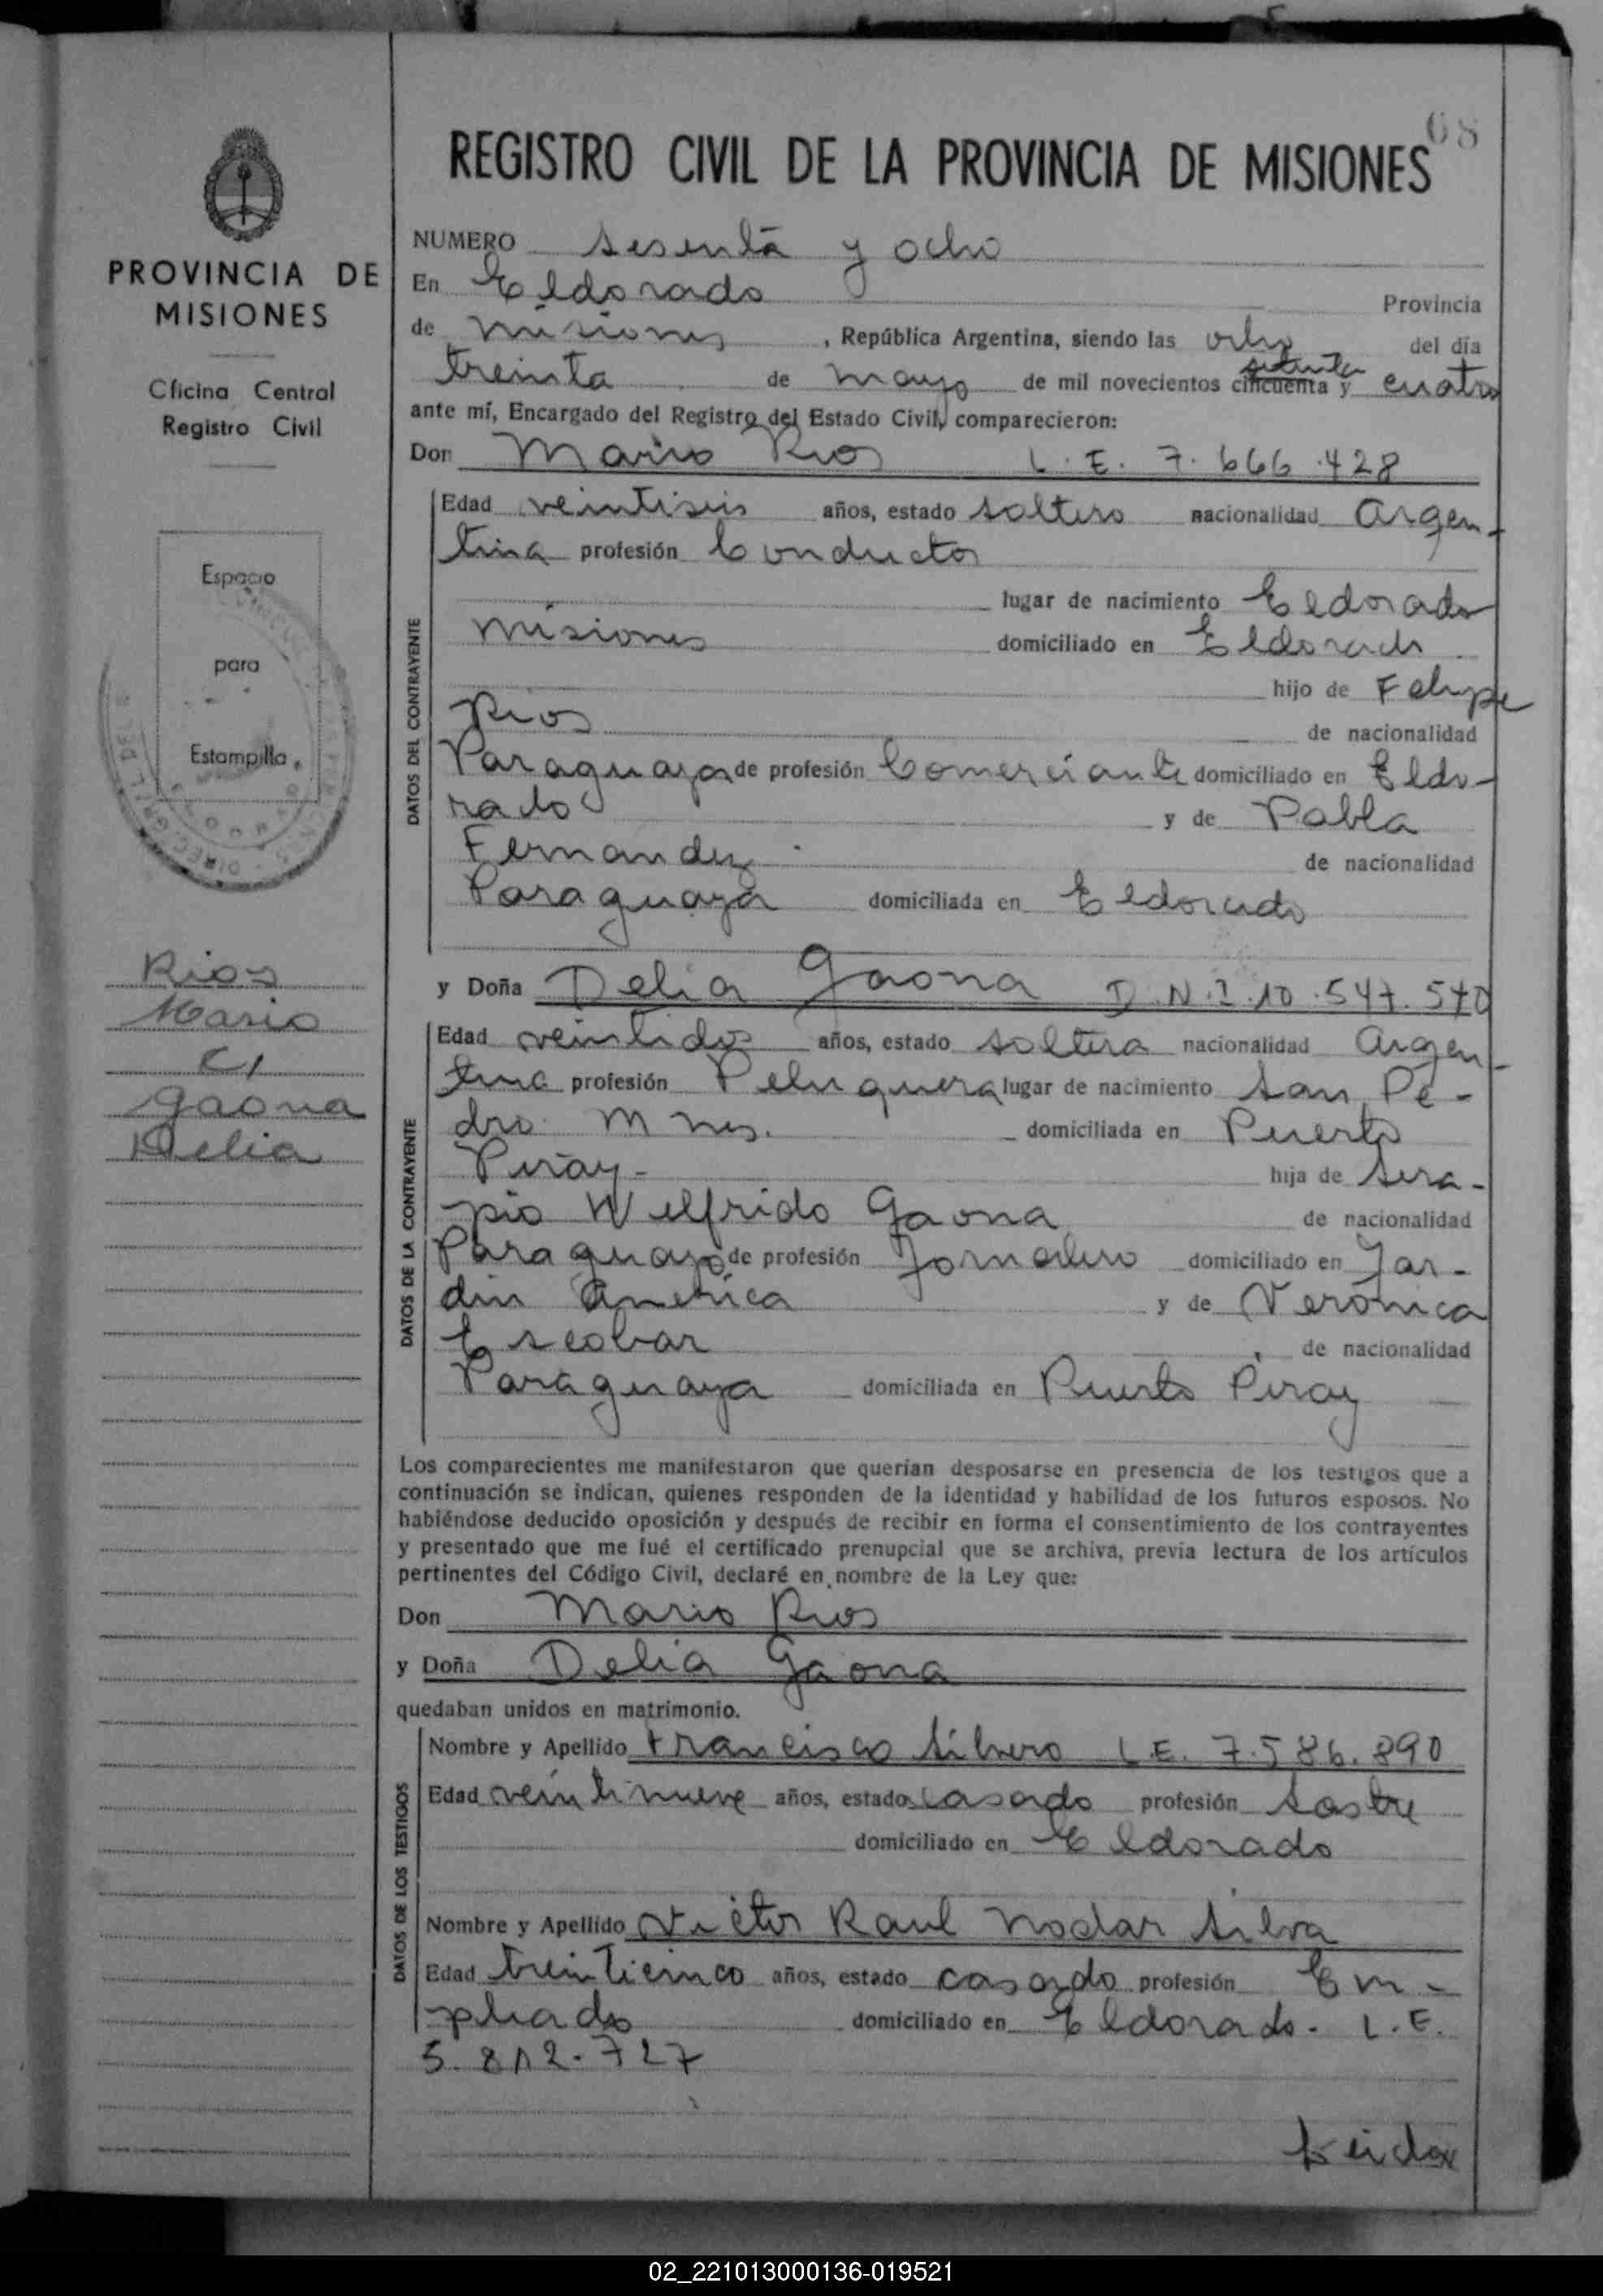 68
REGISTRO CIVIL DE LA PROVINCIA DE MISIONES
PROVINCIA DE
MISIONES
Oficina Central
Registro Civil
Espacio
para
Estampilla
Rios
Mario
c/
Gaona
Delia
NUMERO sesenta y ocho
En Eldorado Provincia
de Misiones, República Argentina, siendo las ocho del día
treinta de mayo de mil novecientos setenta cincuenta y cuatro
ante mí, Encargado del Registro del Estado Civil, comparecieron:
Don Mario Rios L.E. 7.666.428
DATOS DEL CONTRAYENTE
Edad veintiseis años, estado soltero nacionalidad Argen-
tina profesión Conductor
lugar de nacimiento Eldorado
Misiones domiciliado en Eldorado
hijo de Felipe
Rios de nacionalidad
Paraguaya de profesión Comerciante domiciliado en Eldo-
rado y de Pabla
Fernandez de nacionalidad
Paraguaya domiciliada en Eldorado
y Doña Delia Gaona D.N.I. 10.547.540
DATOS DE LA CONTRAYENTE
Edad veintidos años, estado soltera nacionalidad Argen-
tina profesión Peluquera lugar de nacimiento San Pe-
dro Mnes. domiciliada en Puerto
Piray- hija de Sera-
pio Wilfrido Gaona de nacionalidad
Paraguayo de profesión Jornalero domiciliado en Jar-
din America y de Veronica
Escobar de nacionalidad
Paraguaya domiciliada en Puerto Piray
Los comparecientes me manifestaron que querían desposarse en presencia de los testigos que a
continuación se indican, quienes responden de la identidad y habilidad de los futuros esposos. No
habiéndose deducido oposición y después de recibir en forma el consentimiento de los contrayentes
y presentado que me fué el certificado prenupcial que se archiva, previa lectura de los artículos
pertinentes del Código Civil, declaré en nombre de la Ley que:
Don Mario Rios
y Doña Delia Gaona
quedaban unidos en matrimonio.
DATOS DE LOS TESTIGOS
Nombre y Apellido Francisco Silvero L.E. 7.586.890
Edad veintinueve años, estado casado profesión Sastre
domiciliado en Eldorado
Nombre y Apellido Victor Raul Nodar Silva
Edad treinticinco años, estado casado profesión Em-
pleado domiciliado en Eldorado. L.E.
5.812.727
Leidos
02_221013000136-019521